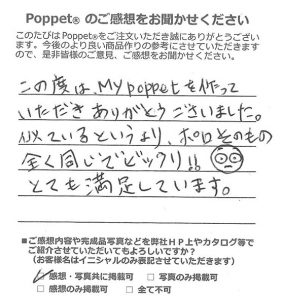 Poppet® のご感想をお聞かせください
このたびはPoppet®をご注文いただき誠にありがとうござい
ます。今後のより良い商品作りの参考にさせていただきます
ので、是非皆様のご意見、ご感想をお聞かせください。
この度は、My poppetを作って
いただきありがとうございました。
似ているというより、ポロそのもの
全く同じでビックリ!!
とても満足しています。
■ご感想内容や完成品写真などを弊社HP上やカタログ等で
ご紹介させていただいてもよろしいですか?
(お客様名はイニシャルのみ表記させていただきます)
☑感想・写真共に掲載可 □写真のみ掲載可
□感想のみ掲載可 □全て不可